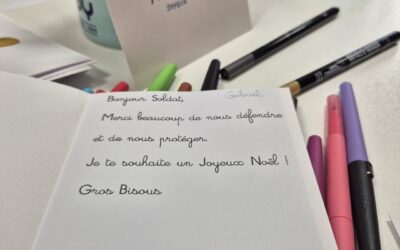 Joyeux
Bonjour Soldat,
Gabriel
Merci beaucoup de nous défendre
et de nous protéger.
Je te souhaite un Joyeux Noël !
Gros Bisous